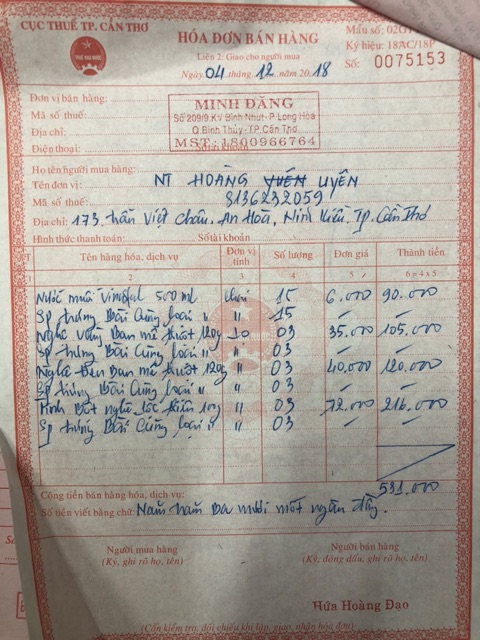 CỤC THUẾ TP. CẦN THƠ
HÓA ĐƠN BÁN HÀNG
Mẫu số: 02GT
Liên 2: Giao cho người mua
Ký hiệu: 18AC/18P
THUẾ NHÀ NƯỚC
Ngày 04 tháng 12 năm 2018
Số: 0075153
Đơn vị bán hàng:
MINH ĐĂNG
Mã số thuế:
Số 209/9.KV Bình Nhựt - P Long Hòa
Địa chỉ:
Q Bình Thủy - TP.Cần Thơ
Điện thoại: Số tài khoản
MST: 1800966764
Họ tên người mua hàng:
Tên đơn vị: NT HOÀNG UYÊN
Mã số thuế: 8136232059
Địa chỉ: 173. Trần Việt Châu. An Hoà, Ninh Kiều. Tp. Cần Thơ
Hình thức thanh toán: Số tài khoản
Tên hàng hóa, dịch vụ Đơn vị tính Số lượng Đơn giá Thành tiền
2 3 4 5 6 = 4 x 5
Nước muối 500 ml chai 15 6.000 90.000
Sp trưng Bài Cùng loại " " 15 – –
Nghệ Vàng Ban mê thuột 120g 03 35.000 105.000
Sp trưng Bài Cùng loại " " 03 – –
Nghệ Đen Ban mê thuột 120g " 03 40.000 120.000
Sp trưng Bài Cùng loại " " 03 – –
Tinh Bột nghệ " 03 72.000 216.000
Sp trưng Bài Cùng loại " " 03 – –
Cộng tiền bán hàng hóa, dịch vụ: 531.000
Số tiền viết bằng chữ: Năm trăm ba mươi một ngàn đồng.
Người mua hàng Người bán hàng
(Ký, ghi rõ họ, tên) (Ký, đóng dấu, ghi rõ họ, tên)
Hứa Hoàng Đạo
(Cần kiểm tra, đối chiếu khi lập, giao, nhận hóa đơn)